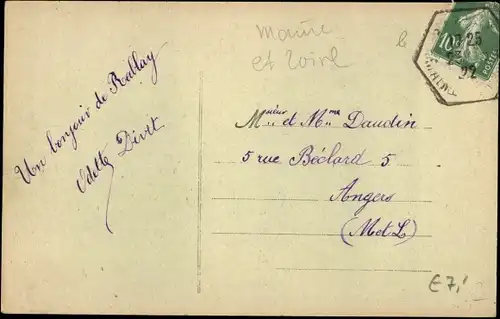 Maine
et Loire
b
10
13 25
22
POSTES
Un bonjour de Rablay
Odette Divet
Monsieur et Mme Daudin
5 rue Béclard 5
Angers
(M et L)
€7,-